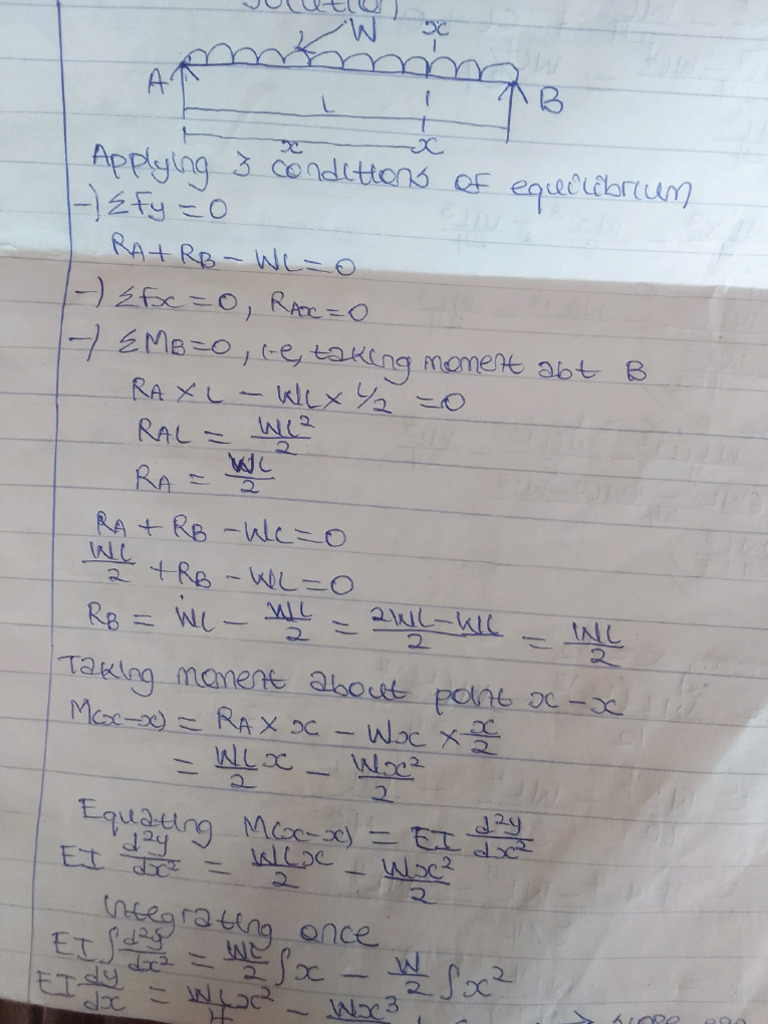 Solution
W x
A B
L
x x
Applying 3 conditions of equilibrium
-) ΣFy = 0
RA + RB - WL = 0
-) ΣFx = 0, RAx = 0
-) ΣMB = 0, i.e, taking moment abt B
RA × L - WL × L/2 = 0
RAL = WL²/2
RA = WL/2
RA + RB - WL = 0
WL/2 + RB - WL = 0
RB = WL - WL/2 = 2WL-WL/2 = WL/2
Taking moment about point x-x
M(x-x) = RA × x - Wx × x/2
= WL/2 x - Wx²/2
Equating M(x-x) = EI d²y/dx²
EI d²y/dx² = WLx/2 - Wx²/2
Integrating once
EI ∫ d²y/dx² = WL/2 ∫x - W/2 ∫x²
EI dy/dx = WLx²/4 - Wx³